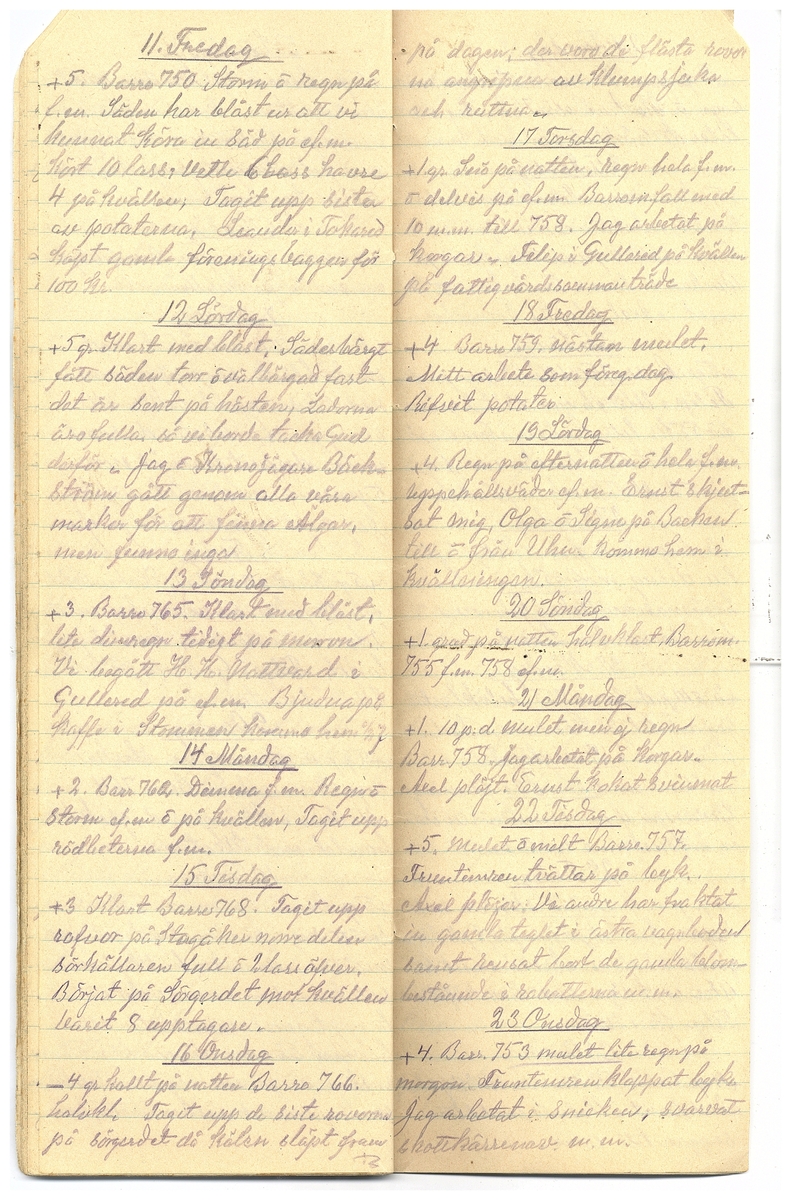 11. Fredag
+5. Barro 750 Storm ō regn på
f.m. Säden har blåst ur att vi
kunnat köra in säd på ef.m.
Kört 10 lass, vette 6 lass havre
4 på kvällen, Tagit upp sista
av potaterna. Leander i Tokared
köpt gamla föreningsbaggen för
100 kr.
12 Lördag
+5 gr. Klart med blåst, Säden bärgt
fått säden torr ō välbärgad fast
det är sent på hösten, Ladorna
äro fulla så vi borde tacka Gud
därför. Jag ō Kronojägare Bäck-
ström gått genom alla våra
marker för att finna Älgar,
men funno inga
13 Söndag
+3. Barro 765. Klart med blåst,
lite dimregn tidigt på morron.
Vi begått H. H. Nattvard i
Gullered på ef.m. Bjudna på
kaffe i Stommen komma hem 1/2 7
14 Måndag
+2. Barr 762. Dimma f.m. Regn ō
storm ef.m ō på kvällen, Tagit upp
rödbeterna f.m.
15 Tisdag
+3 Klart Barro 768. Tagit upp
rofvor på Stugåker norre delen
sörkällaren full ō 2 lass öfver.
Börjat på Sörgerdet mot kvällen
varit 8 upptagare.
16 Onsdag
–4 gr kallt på natten Barro 766.
halvkl. Tagit upp de sista rovorna
på sörgerdet då kälen släpt fram
på dagen; der voro de flästa rovor
na angripna av Klumpsjuka
och ruttna.
17 Torsdag
+1 gr. Snö på natten, regn hela f.m.
ō delvis på ef.m. Barrom fall med
10 m.m. till 758. Jag arbetat på
korgar. Filip i Gullered på kvällen
på fattigvårdssammanträde
18 Fredag
+4 Barro 759. nästan mulet.
Mitt arbete som föreg. dag.
Rifvit potater
19 Lördag
+4. Regn på efternatten ō hela f.m.
uppehållsväder ef.m. Ernst skjut-
sat mig, Olga ō Signe på Backen
till ō från Uhu. Komma hem i
kvällningen.
20 Söndag
+1 grad på natten halvklart Barrom.
755 f.m. 758 ef.m.
21 Måndag
+1. 10 p.d mulet men ej regn
Barr. 758. Jag arbetat på korgar.
Axel plöjt. Ernst kokat svinmat
22 Tisdag
+5. mulet ō milt Barro. 757.
Fruntimren tvättar på byk.
Axel plöjer. Vi andre har fraktat
in gamla teglet i östra vagnboden
samt rensat bort de gamla blom-
bestånde i rabatterna m.m.
23 Onsdag
+4. Barr. 753 mulet lite regn på
morgon. Fruntimren klappat byk.
Jag arbetat i snicken, svarvat
skottkärrenav. m.m.